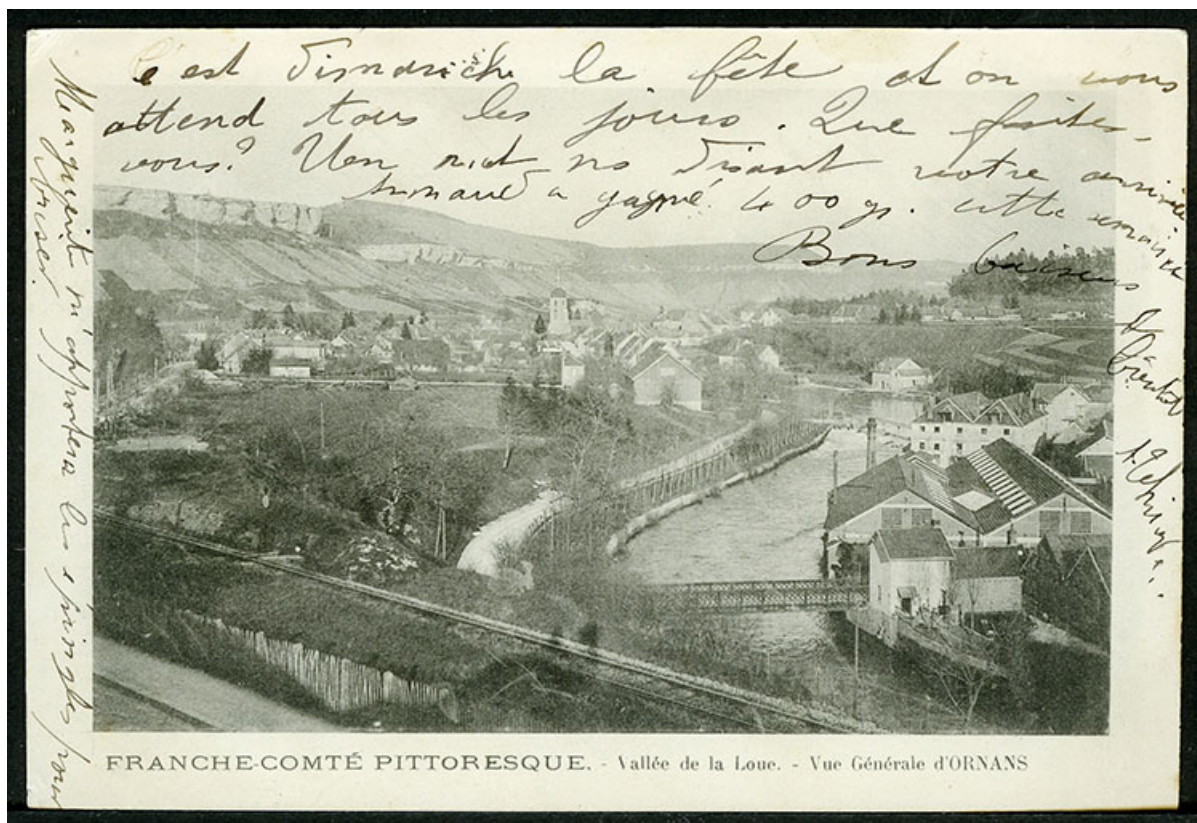 c'est Dimanche la fête et on vous
attend tous les jours. Que faites-
vous? Un mot ns disant votre arrivée.
a gagné 400 gr. cette semaine
Bons baisers
Marguerite m'apportera les épingles pour
friser.
FRANCHE-COMTÉ PITTORESQUE. - Vallée de la Loue. - Vue Générale d'ORNANS